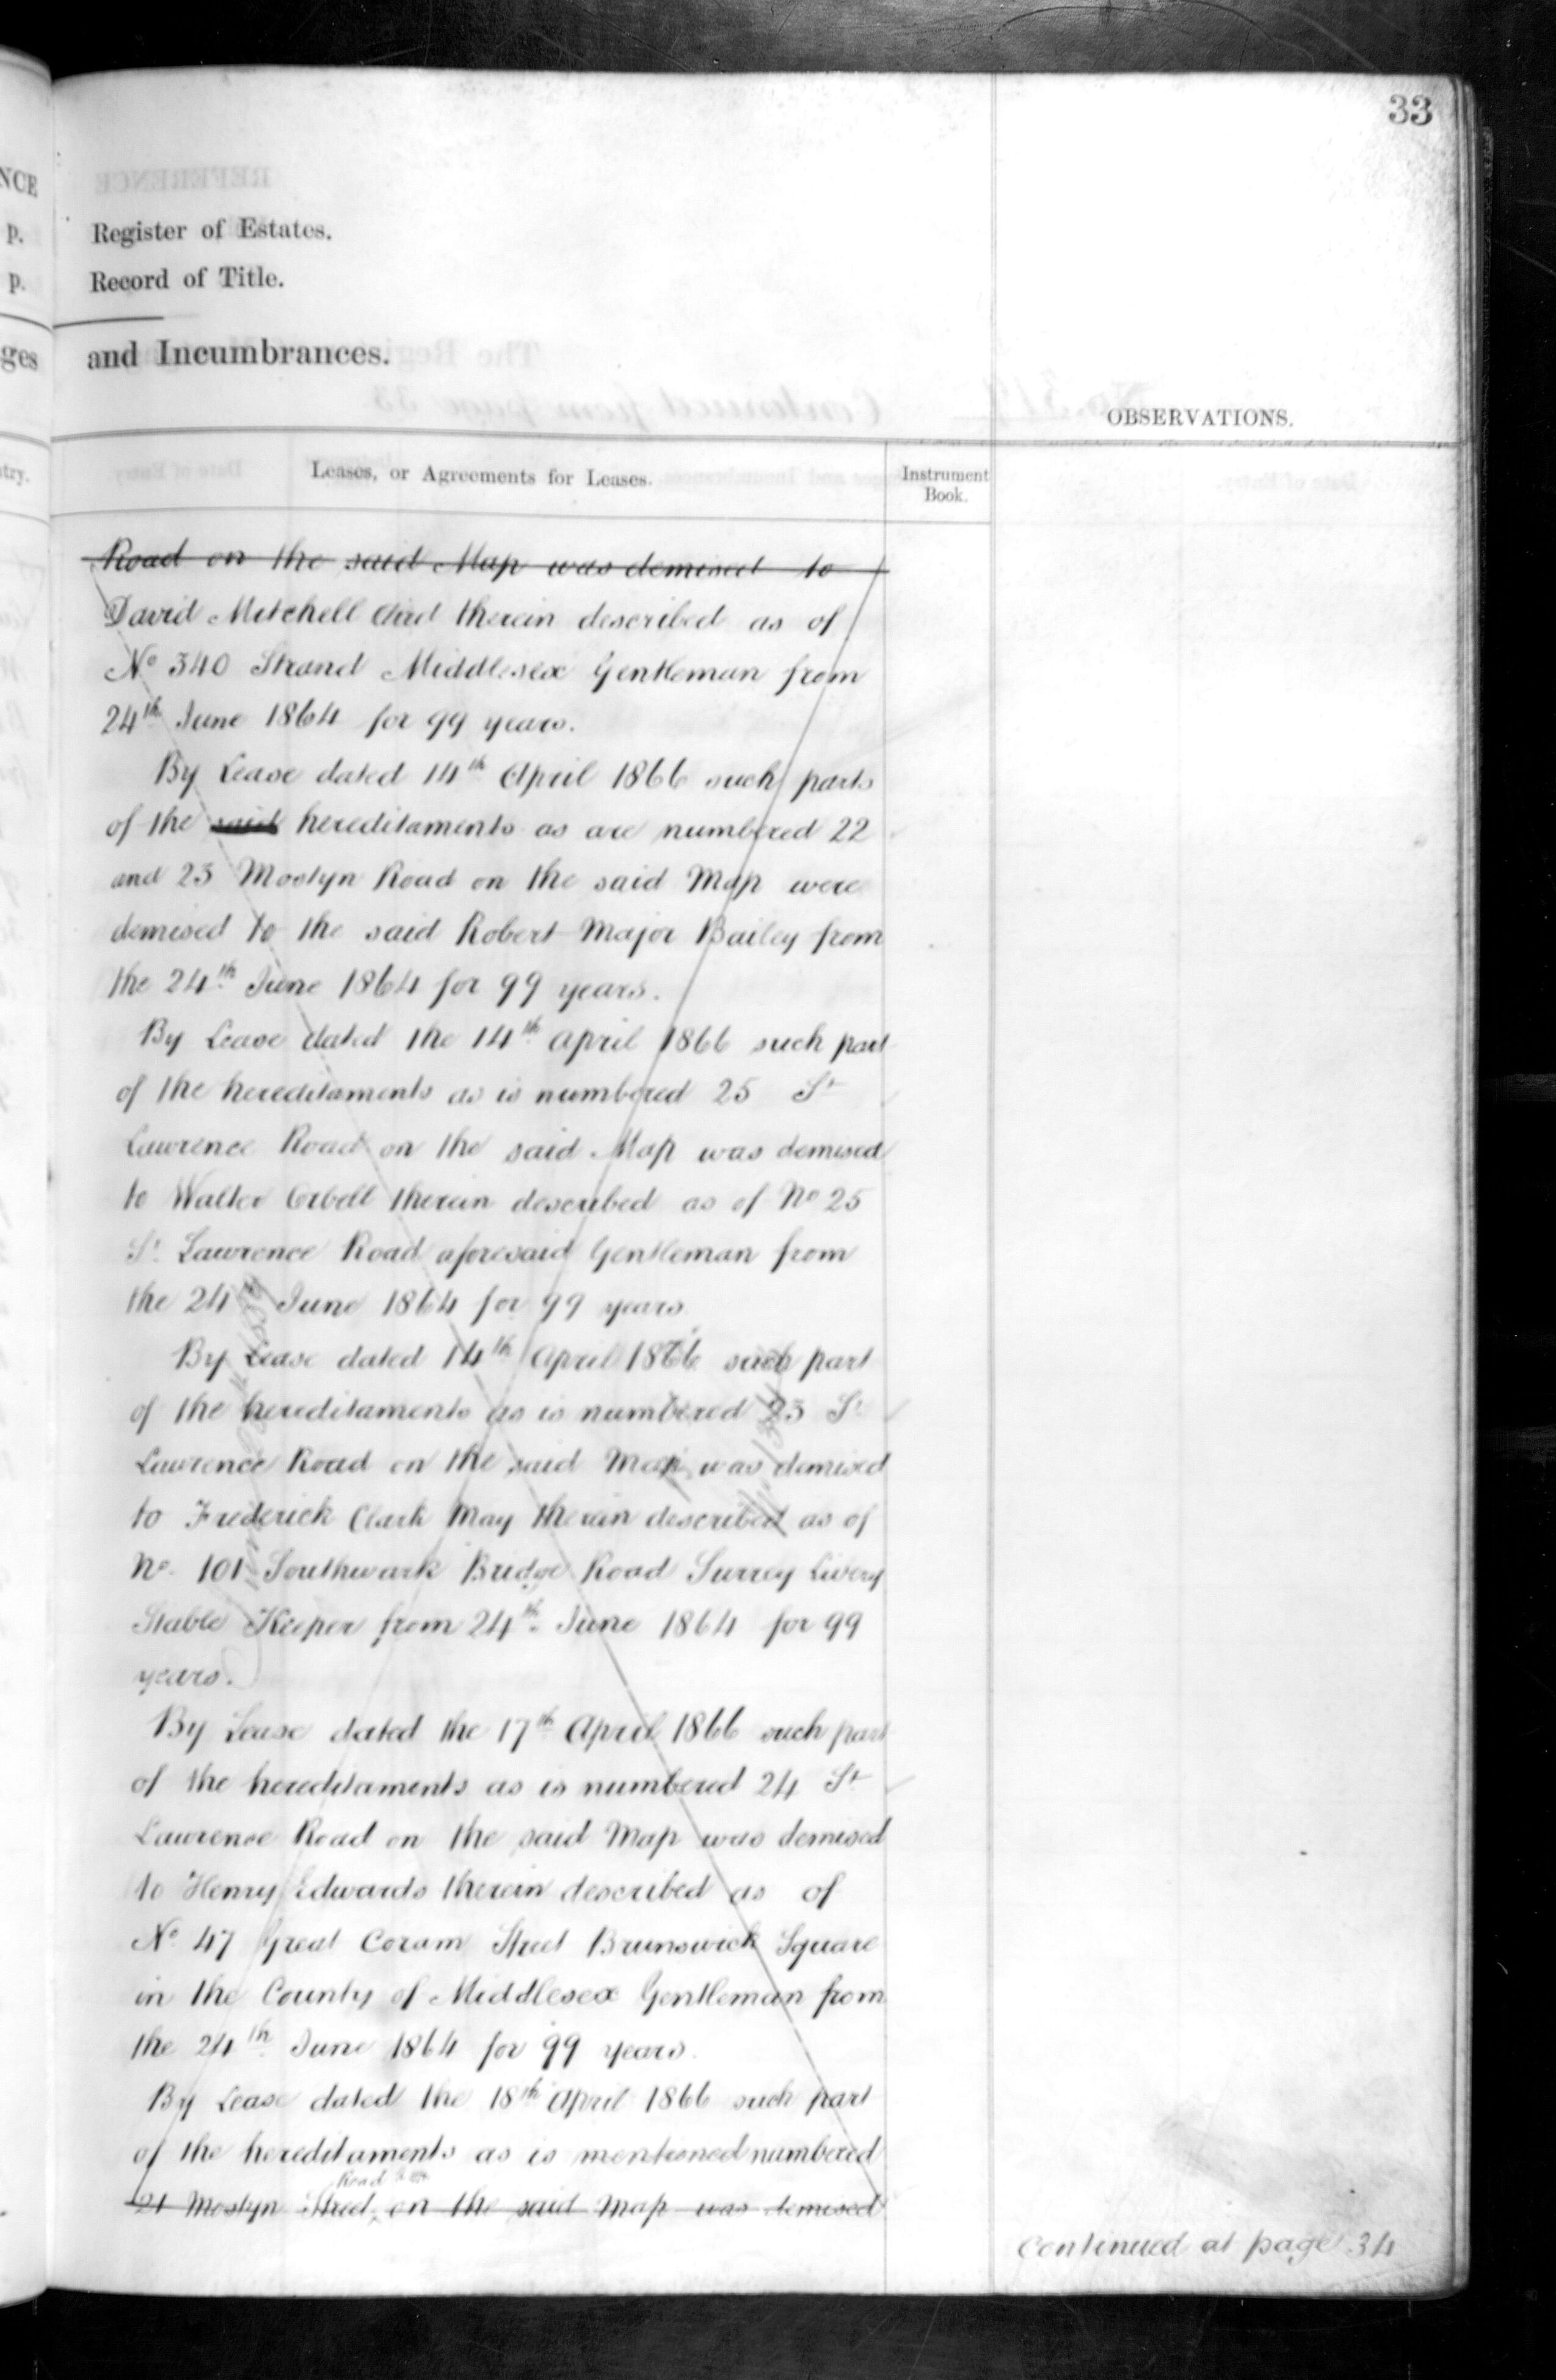 33
NCE
p.
p.
ges
try.
Register of Estates.
Record of Title.
and Incumbrances.
OBSERVATIONS.
Leases, or Agreements for Leases.
Instrument
Book.
Road on the said Map was demised to
David Mitchell Aird therein described as of
No 340 Strand Middlesex Gentleman from
24th June 1864 for 99 years.
By Lease dated 14th April 1866 such parts
of the said hereditaments as are numbered 22
and 23 Mostyn Road on the said Map were
demised to the said Robert Major Bailey from
the 24th June 1864 for 99 years.
By Lease dated the 14th April 1866 such part
of the hereditaments as is numbered 25 St
Lawrence Road on the said Map was demised
to Walter Orbell therein described as of No 25
St. Lawrence Road aforesaid Gentleman from
the 24th June 1864 for 99 years
By Lease dated 14th April 1866 such part
of the hereditaments as is numbered 23 St
Lawrence Road on the said Map was demised
to Frederick Clark May therein described as of
No. 101 Southwark Bridge Road Surrey Livery
Stable Keeper from 24th June 1864 for 99
years.
By Lease dated the 17th April 1866 such part
of the hereditaments as is numbered 24 St
Lawrence Road on the said Map was demised
to Henry Edwards therein described as of
No. 47 Great Coram Street Brunswick Square
in the County of Middlesex Gentleman from
the 24th June 1864 for 99 years.
By Lease dated the 18th April 1866 such part
of the hereditaments as is mentioned numbered
Road
21 Mostyn Street on the said Map was demised
continued at page 34